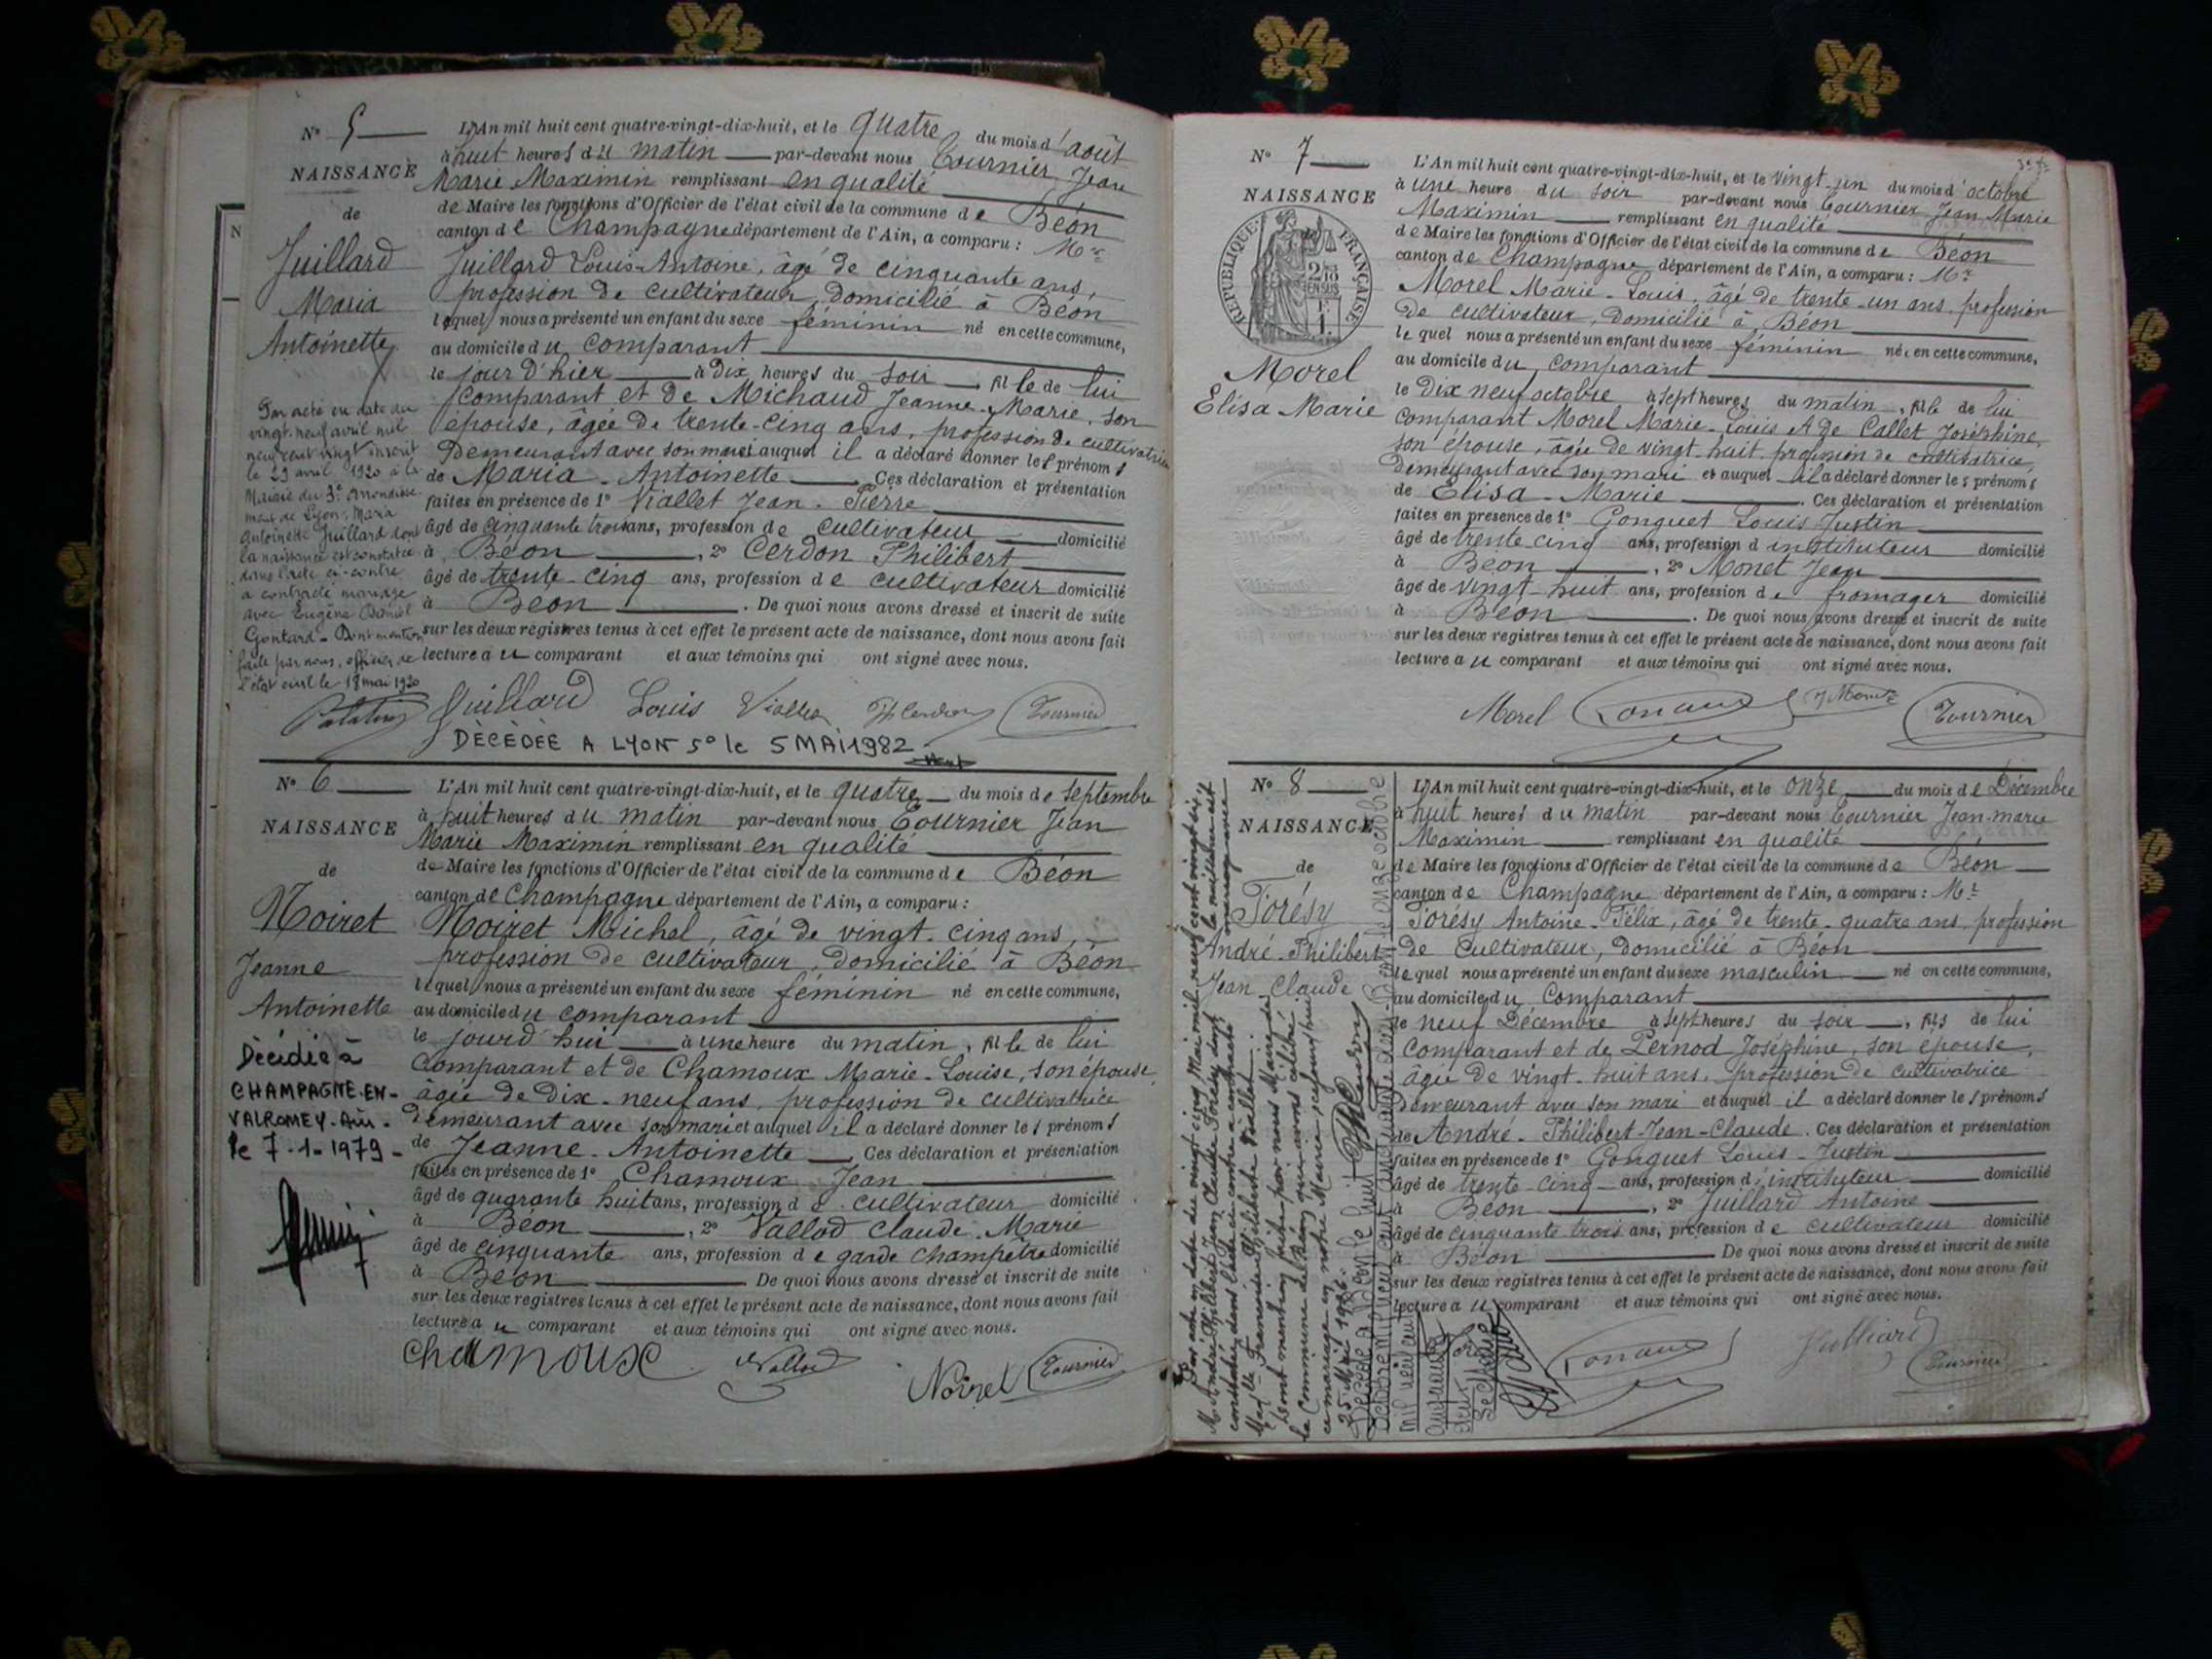 N° 5
NAISSANCE
de
Juillard
Maria
Antoinette
Par acte en date du
vingt-neuf avril mil
neuf cent vingt inscrit
le 29 avril 1920 à la
Mairie du 3e Arrondisse-
ment de Lyon, Maria
Antoinette Juillard dont
la naissance est constatée
dans l'acte ci-contre
a contracté mariage
avec Eugène Daniel
Gontard. Dont mention
faite par nous, officier de
l'état civil le 18 mai 1920
L'An mil huit cent quatre-vingt-dix-huit, et le quatre du mois d'août
à huit heures du matin par-devant nous Tournier Jean
Marie Maximin remplissant en qualité
de Maire les fonctions d'Officier de l'état civil de la commune de Béon
canton de Champagne département de l'Ain, a comparu : Mr
Juillard Louis-Antoine, âgé de cinquante ans,
profession de cultivateur, domicilié à Béon
lequel nous a présenté un enfant du sexe féminin né en cette commune,
au domicile du comparant
le jour d'hier à dix heures du soir, fille de lui
comparant et de Michaud Jeanne-Marie, son
épouse, âgée de trente-cinq ans, profession de cultivatrice
demeurant avec son mari auquel il a déclaré donner les prénoms
de Maria-Antoinette. Ces déclaration et présentation
faites en présence de 1° Viallet Jean-Pierre
âgé de cinquante trois ans, profession de cultivateur domicilié
à Béon, 2° Cerdon Philibert
âgé de trente-cinq ans, profession de cultivateur domicilié
à Béon. De quoi nous avons dressé et inscrit de suite
sur les deux registres tenus à cet effet le présent acte de naissance, dont nous avons fait
lecture au comparant et aux témoins qui ont signé avec nous.
Juillard Louis Viallet Ph Cerdon Tournier
DÉCÉDÉE A LYON 5° le 5 MAI 1982
N° 6
NAISSANCE
de
Noiret
Jeanne
Antoinette
Décédée à
CHAMPAGNE-EN-
VALROMEY-Ain-
le 7-1-1979-
L'An mil huit cent quatre-vingt-dix-huit, et le quatre du mois de septembre
à huit heures du matin par-devant nous Tournier Jean
Marie Maximin remplissant en qualité
de Maire les fonctions d'Officier de l'état civil de la commune de Béon
canton de Champagne département de l'Ain, a comparu :
Noiret Michel, âgé de vingt-cinq ans,
profession de cultivateur, domicilié à Béon
lequel nous a présenté un enfant du sexe féminin né en cette commune,
au domicile du comparant
le jourd'hui à une heure du matin, fille de lui
comparant et de Chamoux Marie-Louise, son épouse,
âgée de dix-neuf ans, profession de cultivatrice
demeurant avec son mari et auquel il a déclaré donner les prénoms
de Jeanne-Antoinette. Ces déclaration et présentation
faites en présence de 1° Chamoux Jean
âgé de quarante huit ans, profession de cultivateur domicilié
à Béon, 2° Vallod Claude-Marie
âgé de cinquante ans, profession de garde champêtre domicilié
à Béon De quoi nous avons dressé et inscrit de suite
sur les deux registres tenus à cet effet le présent acte de naissance, dont nous avons fait
lecture au comparant et aux témoins qui ont signé avec nous.
Chamoux Vallod Noiret Tournier
N° 7
NAISSANCE
REPUBLIQUE FRANÇAISE
Morel
Elisa Marie
L'An mil huit cent quatre-vingt-dix-huit, et le vingt-un du mois d'octobre
à une heure du soir par-devant nous Tournier Jean Marie
Maximin remplissant en qualité
de Maire les fonctions d'Officier de l'état civil de la commune de Béon
canton de Champagne département de l'Ain, a comparu : Mr
Morel Marie-Louis, âgé de trente-un ans, profession
de cultivateur, domicilié à Béon
lequel nous a présenté un enfant du sexe féminin né, en cette commune,
au domicile du comparant
le dix neuf octobre à sept heures du matin, fille de lui
comparant Morel Marie-Louis et de Callet Joséphine,
son épouse, âgée de vingt-huit, profession de cultivatrice,
demeurant avec son mari et auquel il a déclaré donner les prénoms
de Elisa-Marie. Ces déclaration et présentation
faites en présence de 1° Gonguet Louis Justin
âgé de trente-cinq ans, profession d'instituteur domicilié
à Béon, 2° Monet Jean
âgé de vingt-huit ans, profession de fromager domicilié
à Béon. De quoi nous avons dressé et inscrit de suite
sur les deux registres tenus à cet effet le présent acte de naissance, dont nous avons fait
lecture au comparant et aux témoins qui ont signé avec nous.
Morel J Monet Tournier
N° 8
NAISSANCE
de
Forésy
André-Philibert
Jean-Claude
Par acte en date du vingt cinq Mai mil neuf cent vingt six,
M. André Philibert Jean Claude Forésy dont
constatée dans l'acte ci-contre a contracté
Mlle Francine Philiberte Viallet
Dont mention faite par nous Maire de
la Commune de Béon qui avons célébré
ce mariage en notre Mairie aujourd'hui
25 Mai 1926.
Ph Cerdon
L'An mil huit cent quatre-vingt-dix-huit, et le onze du mois de Décembre
à huit heures du matin par-devant nous Tournier Jean-marie
Maximin remplissant en qualité
de Maire les fonctions d'Officier de l'état civil de la commune de Béon
canton de Champagne département de l'Ain, a comparu : Mr
Forésy Antoine-Félix, âgé de trente-quatre ans, profession
de cultivateur, domicilié à Béon
lequel nous a présenté un enfant du sexe masculin né en cette commune,
au domicile du Comparant
le neuf Décembre à sept heures du soir, fils de lui
comparant et de Pernod Joséphine, son épouse,
âgée de vingt-huit ans, profession de cultivatrice
demeurant avec son mari et auquel il a déclaré donner les prénoms
de André-Philibert-Jean-Claude. Ces déclaration et présentation
faites en présence de 1° Gonguet Louis-Justin
âgé de trente-cinq ans, profession d'instituteur domicilié
à Béon, 2° Juillard Antoine
âgé de cinquante trois ans, profession de cultivateur domicilié
à Béon De quoi nous avons dressé et inscrit de suite
sur les deux registres tenus à cet effet le présent acte de naissance, dont nous avons fait
lecture au comparant et aux témoins qui ont signé avec nous.
Tournier